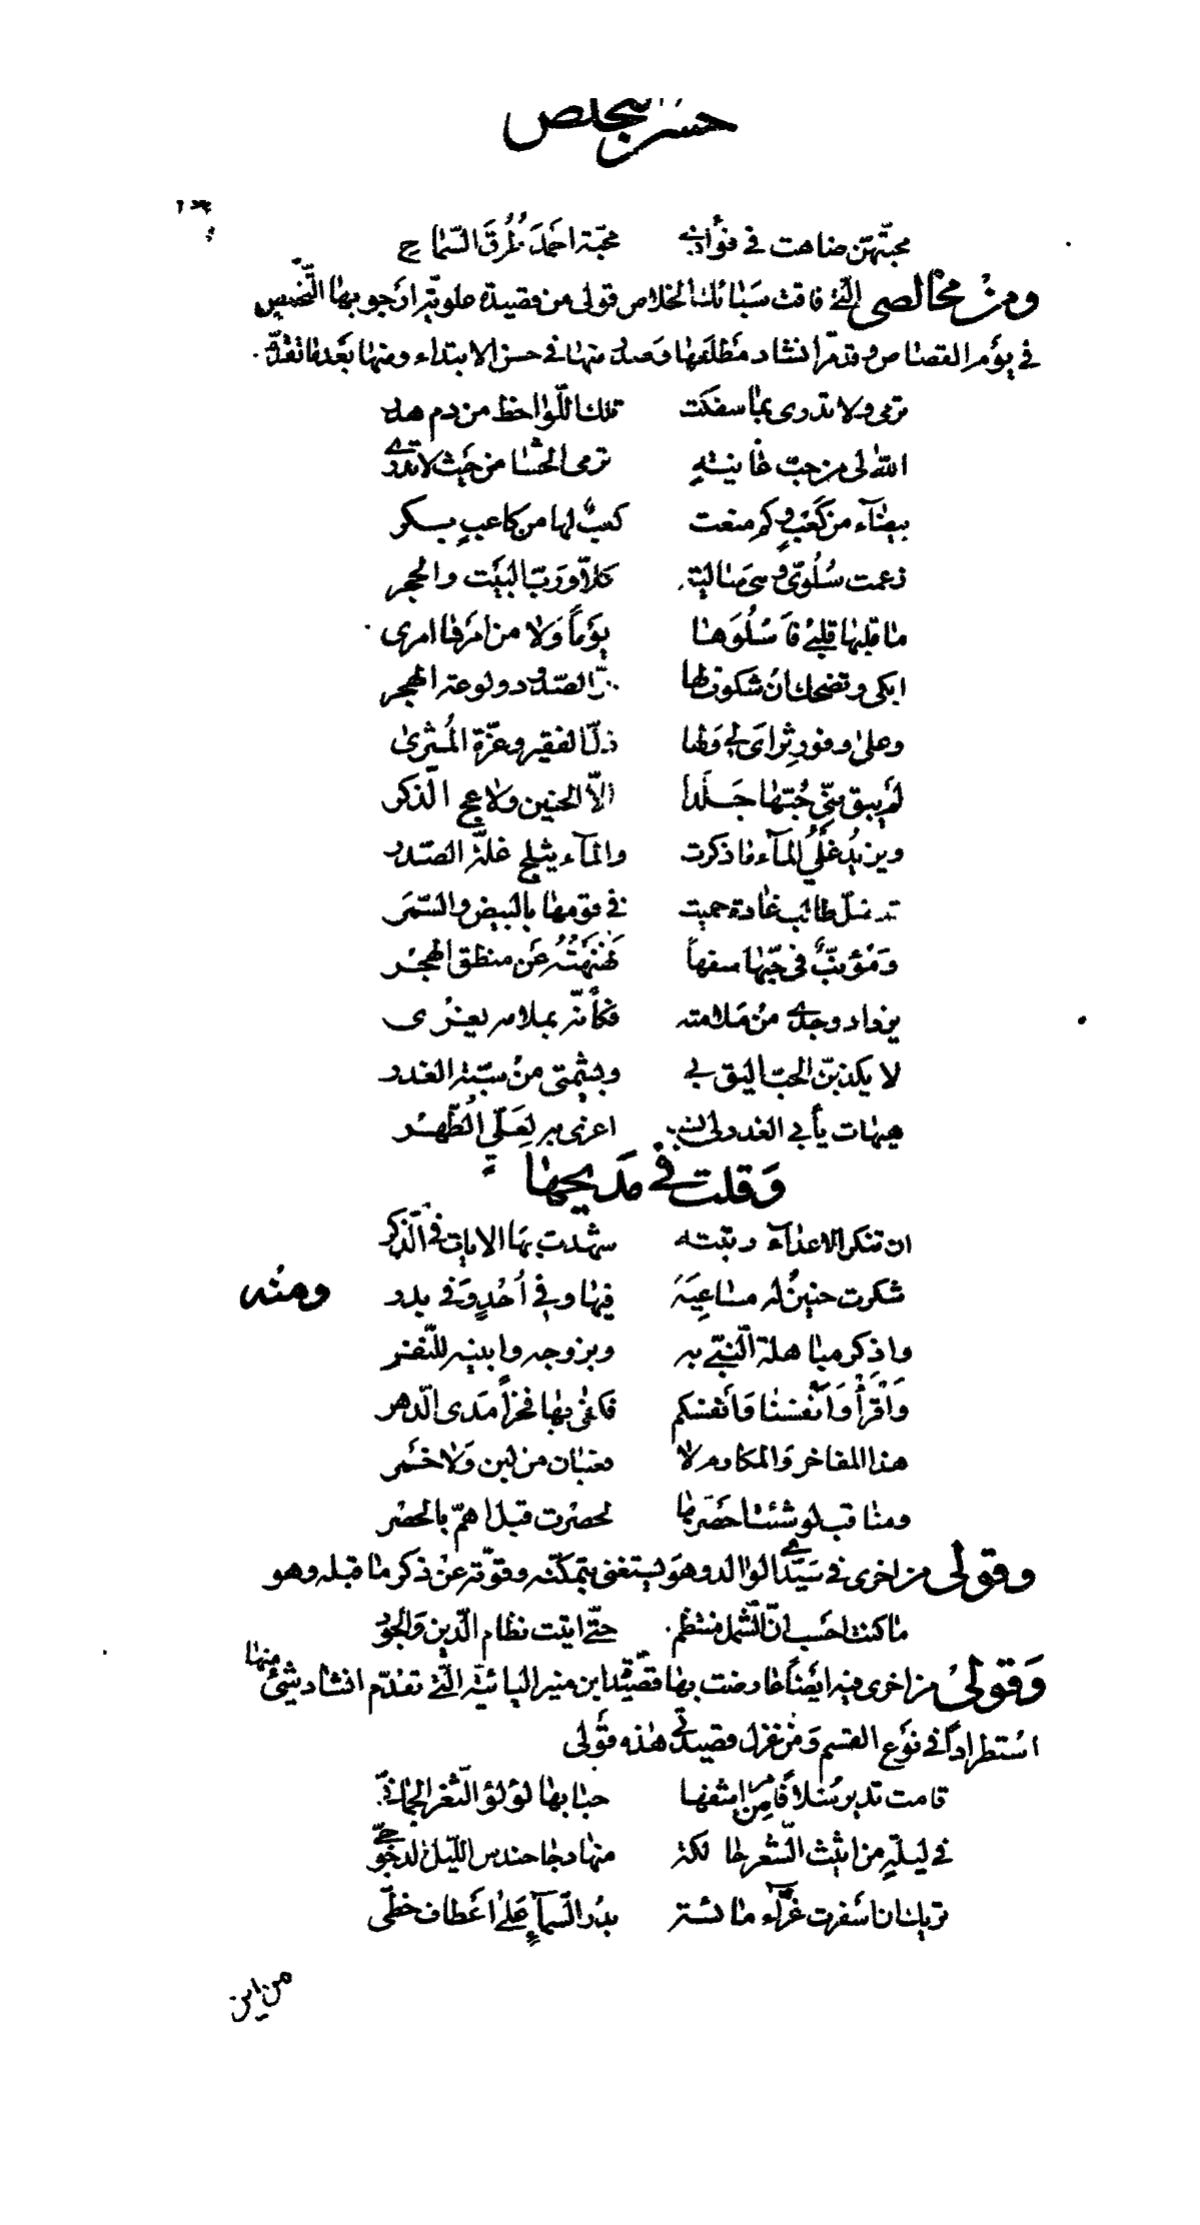 حسن التخلص
محبّتهنّ ضاهت في فؤادي محبّة احمَد طُرقَ السّماح
ومن مخالصي الّتي فاقت سبائك الخلاص قولي من قصيدة علويّة ارجو بها التّخيص
في يوم القصاص وقد مرّ انشاد مطلعها وصدر منها في حسن الابتداء ومنها بعد ما تقدّم
ترمي ولا تدري بما سفكت تلك اللّواحظ من دم هدر
الله لي من حبّ غانية ترمي الحشا من حيث لا تدري
بيضاء من كعب وكم منعت كعبٌ لها من كاعبٍ بكر
زعمت سُلُوّي وهي سالية كلّا وربّ البيت والحجر
ما قلبها قلبي فأسلُوَها يوماً ولا من امرها امري
ابكي وتضحك ان شكوت لها حرّ الصّدود ولوعة الهجر
وعلى وفور ثراي لي ولها ذلّ الفقير وعزّة المُثري
لم يبق منّي حُبّها جَلَداً الّا الحنين ولاعج الذّكر
ويزيد غلّي الماء ما ذكرت والماء يثلج غلّة الصّدر
قد ضلّ طالب غادة حميت في قومها بالبيض والسّمر
ومؤنّبٌ في حبّها سفهاً نَهْنَهْتُهُ عن منطق الهجر
يزداد وجدي من ملامته فكأنّه بملامه يغري
لا يكذبنّ الحبّ اليق بي وبشيمتي من سبّة الغدر
هيهات يأبى الغدر لي نسب اعزى به لعليّ الطّهر
وقلت في مديحها
ان تنكر الاعداء رتبته شهدت بها الايات في الذّكر
شكرت حنينٌ له مساعيَه فيها وفي أُحُدٍ وفي بدر ومنه
واذكر مباهلة النّبيّ به وبزوجه وابنيه للنّفر
واقرأ وانفسنا وانفسكم فكفى بها فخراً مدى الدّهر
هذا المفاخر والمكارم لا قعبان من لبن ولا خمر
ومناقب لو شئت احصرها لحصرت قبل اهمّ بالحصر
وقولي من اخرى في سيّدي الوالد وهو يستغني بتمكّنه وقوّته عن ذكر ما قبله وهو
ما كنت احسب انّ الشّمل منتظم حتّى اتيت نظام الدّين والجود
وقولي من اخرى فيه ايضاً عارضت بها قصيدة ابن منير اليائيّة الّتي تقدّم انشاد شيئ منها
استطراداً في نوع القسم ومن غزل قصيدتي هذه قولي
قامت تدير سُلافاً من مراشفها حبابها لؤلؤ الثّغر الجمانيّ
في ليلةٍ من اثيث الشّعر حالكة منها دجا حندس اللّيل الدجوجيّ
تريك ان اسفرت غرّاء مائسة بدر السّماء على اعطاف خطّيّ
من اين